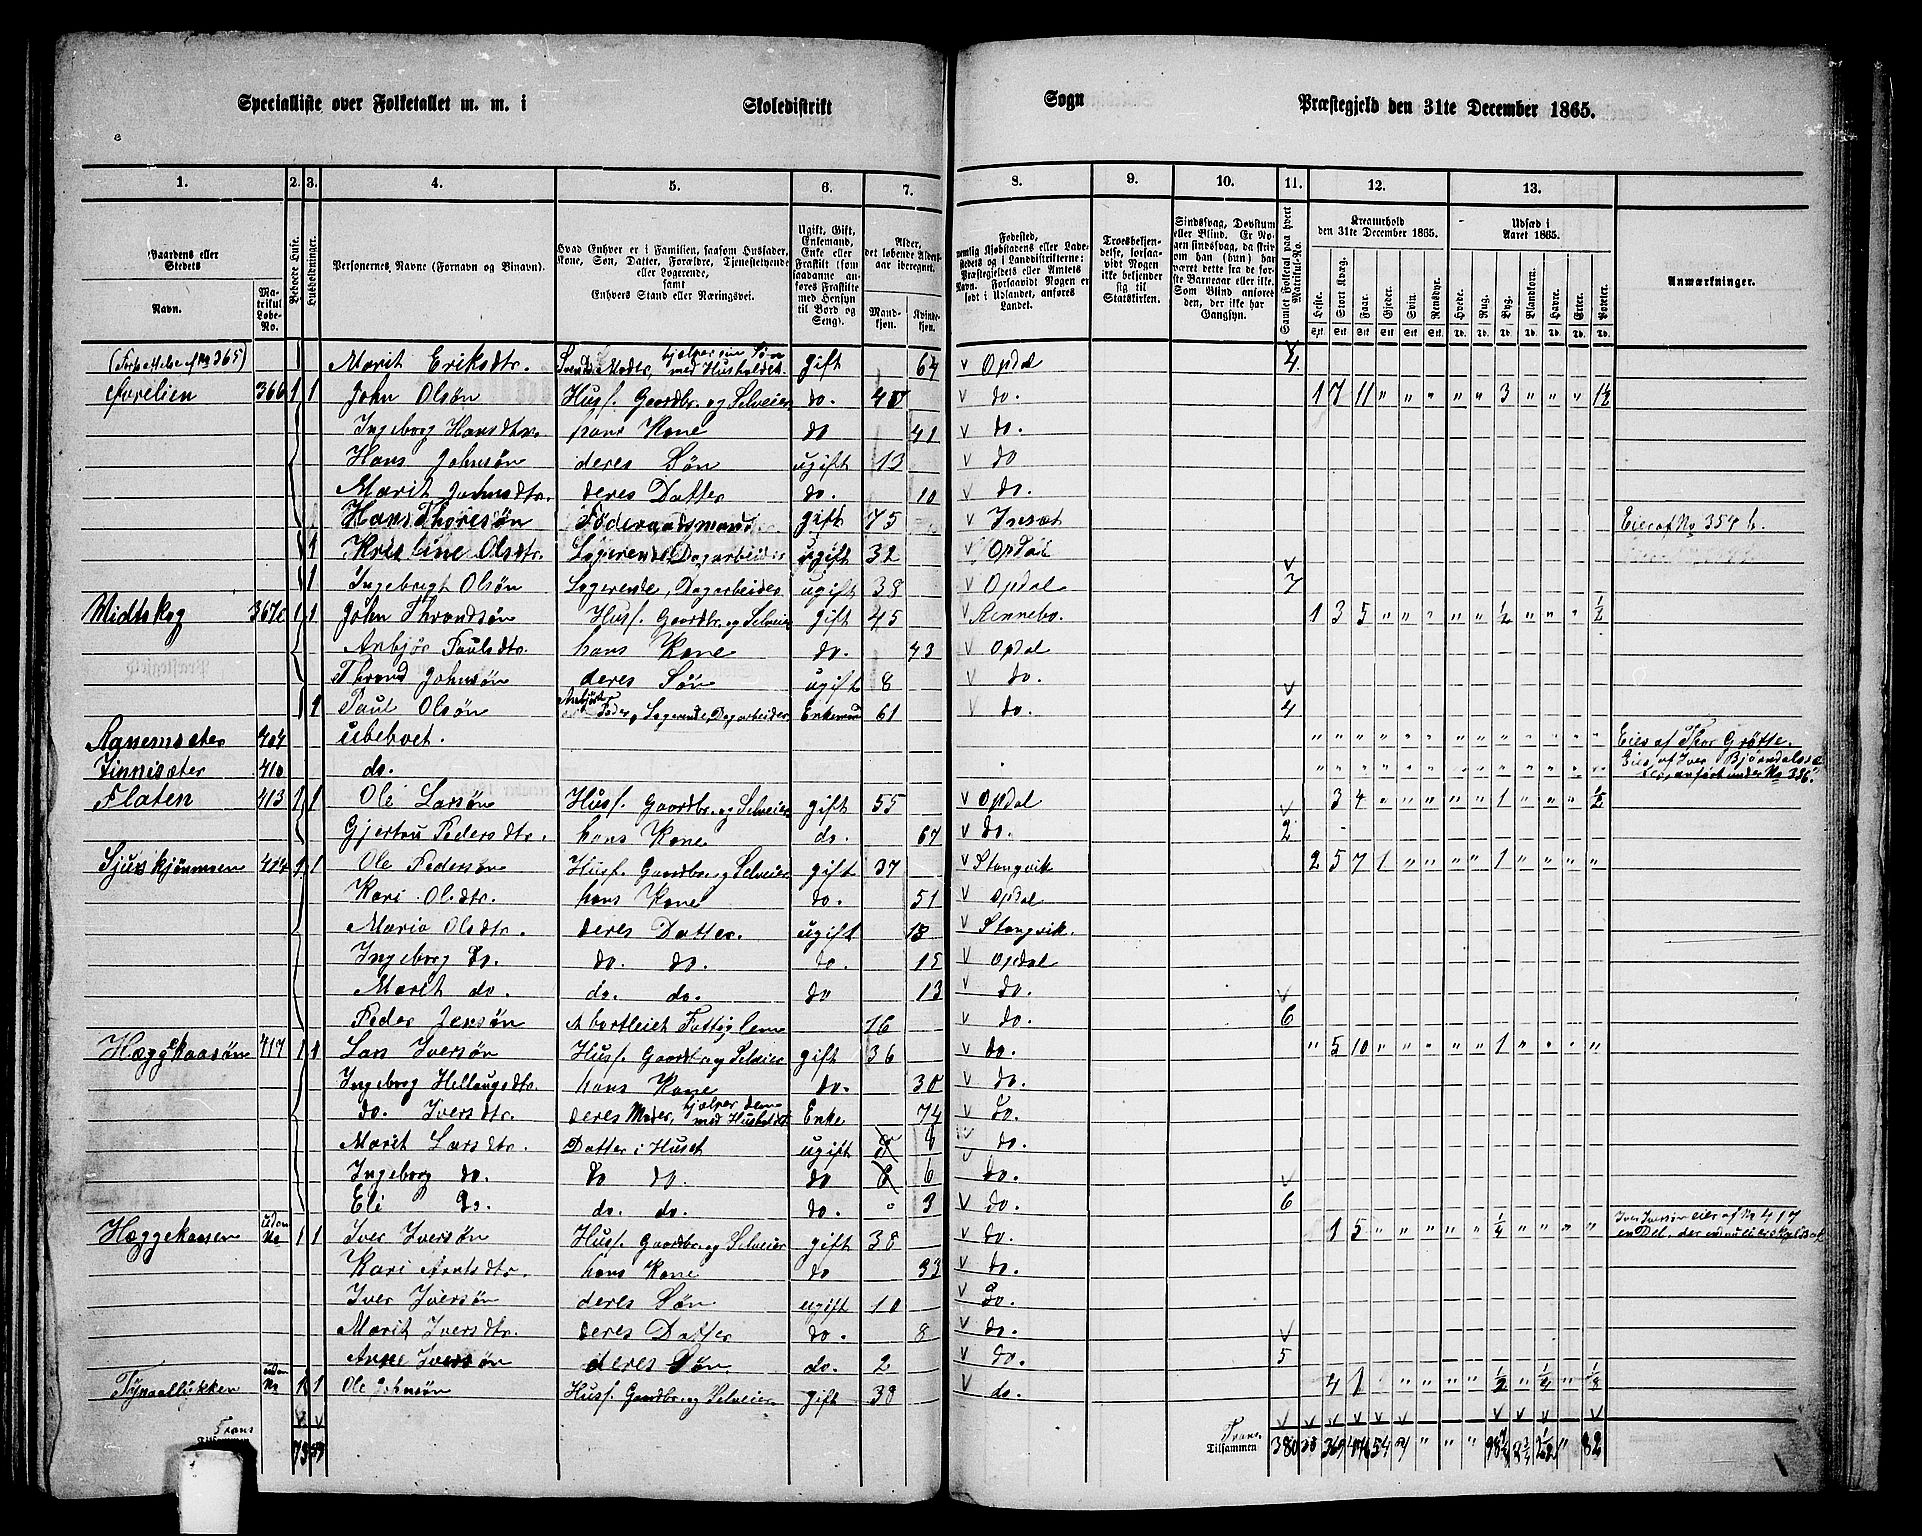 Specialliste over Folketallet m. m. i Skoledistrikt Sogn Præstegjeld den 31te December 1865.
1. 2. 3. 4. 5. 6. 7. 8. 9. 10. 11. 12. 13.
Gaardens eller Stedets Navn. Matrikul Løbe-No. Beboede Huse. Husholdninger. Personernes Navne (Fornavn og Binavn). Hvad Enhver er i Familien, saasom Husfader, Kone, Søn, Datter, Forældre, Tjenestetyende eller Logerende, samt Enhvers Stand eller Næringsvei. Ugift, Gift, Enkemand, Enke eller Fraskilt (som saadanne anføres Fraskilte med Hensyn til Bord og Seng). Alder, det løbende Alders-aar iberegnet. Mandkjøn. Kvindekjøn. Fødested, Troesbekjendelse, forsaavidt Nogen ikke bekjender sig til Statskirken. Sindssvag, Døvstum eller Blind. Samlet Folketal paa hvert Matrikul-No. Kreaturhold den 31te December 1865. Heste. Stort Kvæg. Faar. Gjeder. Svin. Rensdyr. Udsæd i Aaret 1865. Hvede. Rug. Byg. Blandkorn. Havre. Erter. Poteter. Anmærkninger.
(Fortsættelse af No 365) 1 Marit Eriksdtr. Svends Moder, hjælper sin Søn med Husholdet gift 64 Opdal 4
366 1 1 John Olsøn Husf. Gaardbr. og Selveier do. 40 do. 1 7 11 " " " " " 3 " " " 1½
Ingeborg Hansdtr. hans Kone do 41 do.
Hans Johnsøn deres Søn ugift 13 do
Marit Johnsdtr. deres Datter do. 10 do.
Hans Thoresøn Føderaadsmand gift 75 Insæt Eier af No 354 b.
1 Kristine Olsdtr. Logerende, Dagarbeider ugift 32 Opdal
1 Ingebrigt Olsøn Logerende, Dagarbeider ugift 38 Opdal 7
Midtskog 367c 1 1 John Throndsøn Husf. Gaardbr. og Selveier gift 45 Rennebo. 1 3 5 " " " " " ½ " " " ½
Anbjør Paulsdtr. hans Kone do. 43 Opdal
Thrond Johnsøn deres Søn ugift 8 do.
1 Paul Olsøn Anbjørs Fader, Logerende, Dagarbeider Enkemand 61 do. 4
404 ubeboet. " " " " " " " " " " " " " Eies af Thor Grøtte.
Finnisæter 410 do. " " " " " " " " " " " " " Eies af Iver Bjørndalsæt anført under No 336.
Flaten 413 1 1 Ole Larsøn Husf. Gaardbr. og Selveier gift 55 Opdal 3 4 " " " " " 1 " " " ½
Gjertru Pedersdtr. hans Kone do. 67 do. 2
414 1 1 Ole Pedersøn Husf. Gaardbr. og Selveier gift 37 Stangvik 2 5 7 1 " " " " 1 " " " "
Kari Olsdtr. hans Kone do. 51 Opdal
Maria Olsdtr. deres Datter. ugift 18 Stangvik.
Ingeborg do. do. do. do. 15 Opdal
Marit do. do. do. do 13 do.
Peder Jensøn Abortleiet Fattiglem 76 do. 6
Hæggekaasøn 417 1 1 Lars Iversøn Husf. Gaardbr. og Selveier gift 36 do. " 5 10 " " " " " 1 " " " "
Ingeborg Hellaugsdtr. hans Kone do. 30 do.
do. Iversdtr. deres Moder, hjælper dem med Husholdet Enke 74 do.
Marit Larsdtr. Datter i Huset ugift 8 do.
Ingeborg do. do do. do 6 do.
Eli do. do. do. do. 3 do. 6
Hæggekaasen uden No 1 1 Iver Iversøn Husf. Gaardbr. og Selveier gift 38 do. 1 5 " " " " " ¼ " " " " Iver Iversøn eier af No 417 en Del, der
Kari Arntsdtr. hans Kone do 33 do.
Iver Iversøn deres Søn ugift 10 do.
Marit Iversdtr. deres Datter do. 8 do.
Arne Iversøn deres Søn do. 2 do. 5
uden No 1 1 Ole Johnsøn Husf. Gaardbr. og Selveier gift 38 do. 4 1 " " " " ½ " ¼ " ⅛
Trans Tilsammen Trans Tilsammen 380